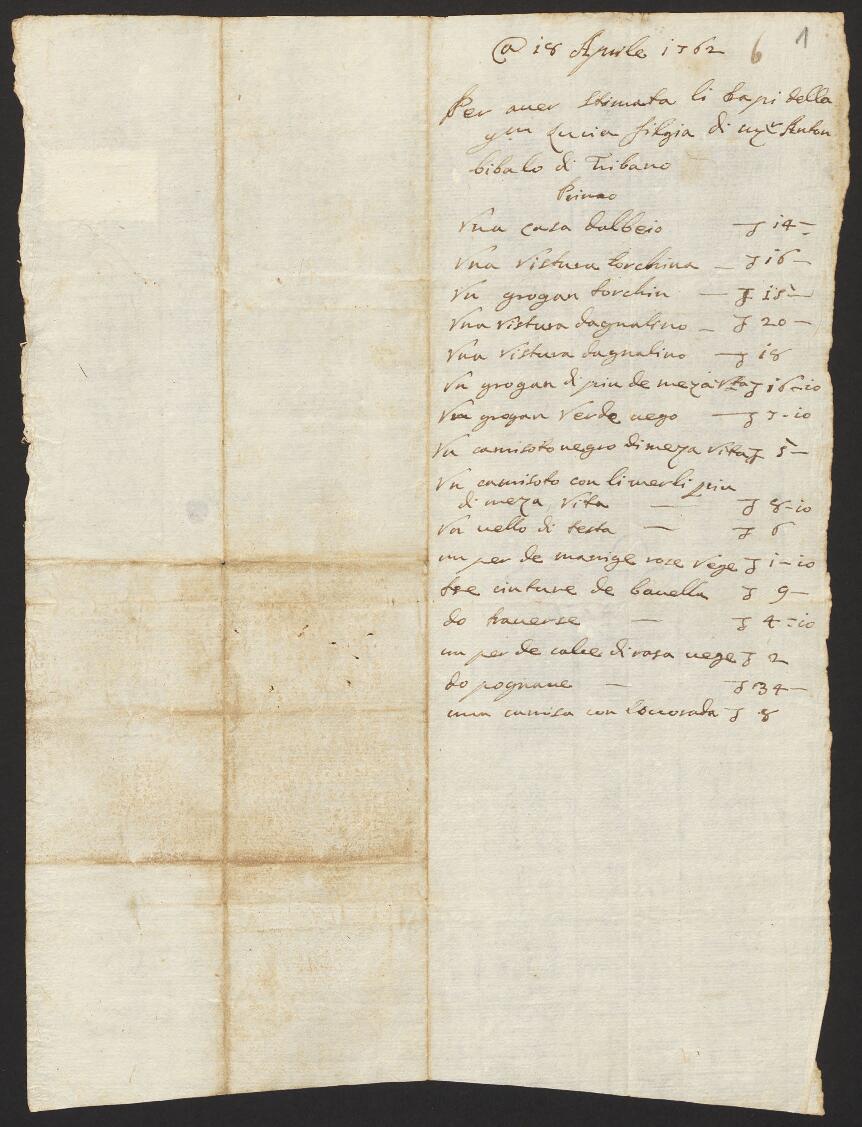 @ 18 Aprile 1762 6 1
Per auer stimata li Capi della
qm Lucia figlia di mr Anton
bibalo di Tribano
Primo
Vna casa dalbeio — 14 –
Vna vistura torchina — 16 –
Vn grogan torchin — 15 –
Vna vistura dagnalino — 20 –
Vna vistura dagnalino — 18
Vn grogan di piu de meza vita 16 – 10
Vn grogan verde uego — 7 – 10
Vn camisoto negro di meza vita 5 –
Vn camisoto con li merli piu
di meza vita — 8 – 10
Vn uello di testa — 6
un per de manige rose vege 1 – 10
tre cinture de bauella 9 –
do trauerse — 4 – 10
un per de calce di rasa uege 2
do pognaue — 34 –
una camisa con 8